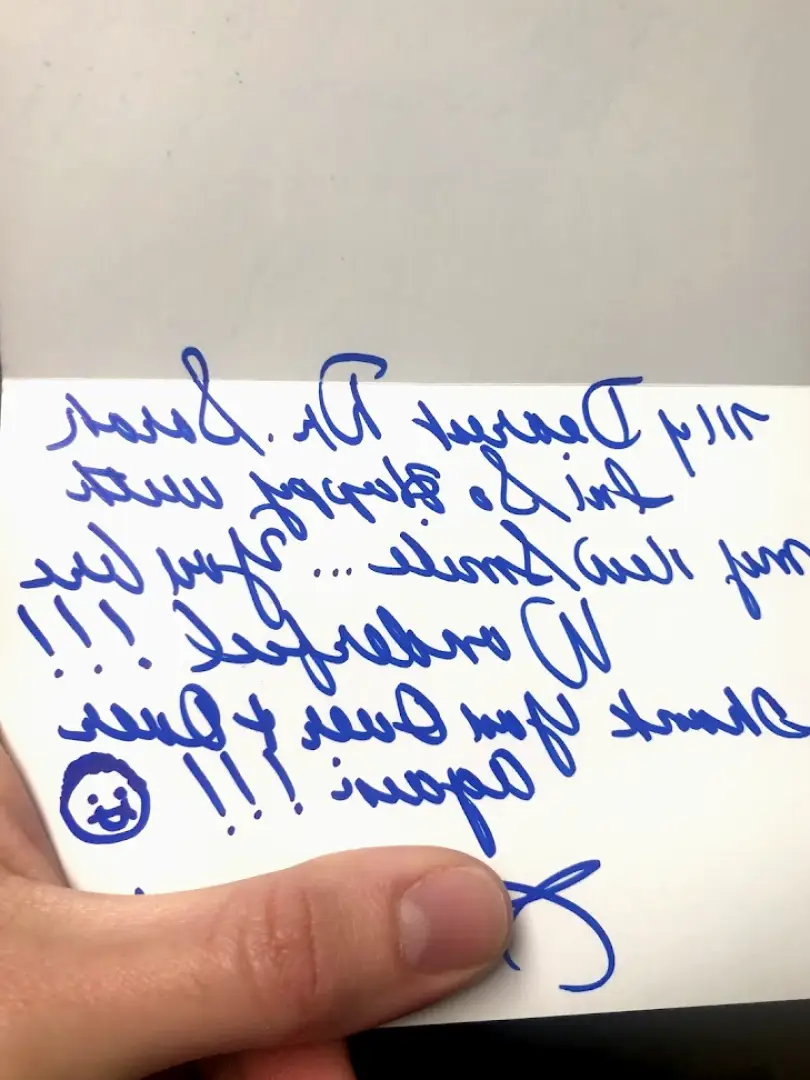 My Dearest Dr. Sarah
Im So Happy with
my New Smile ... You Are
Wonderful !!!
Thank You Over & Over
again !!!